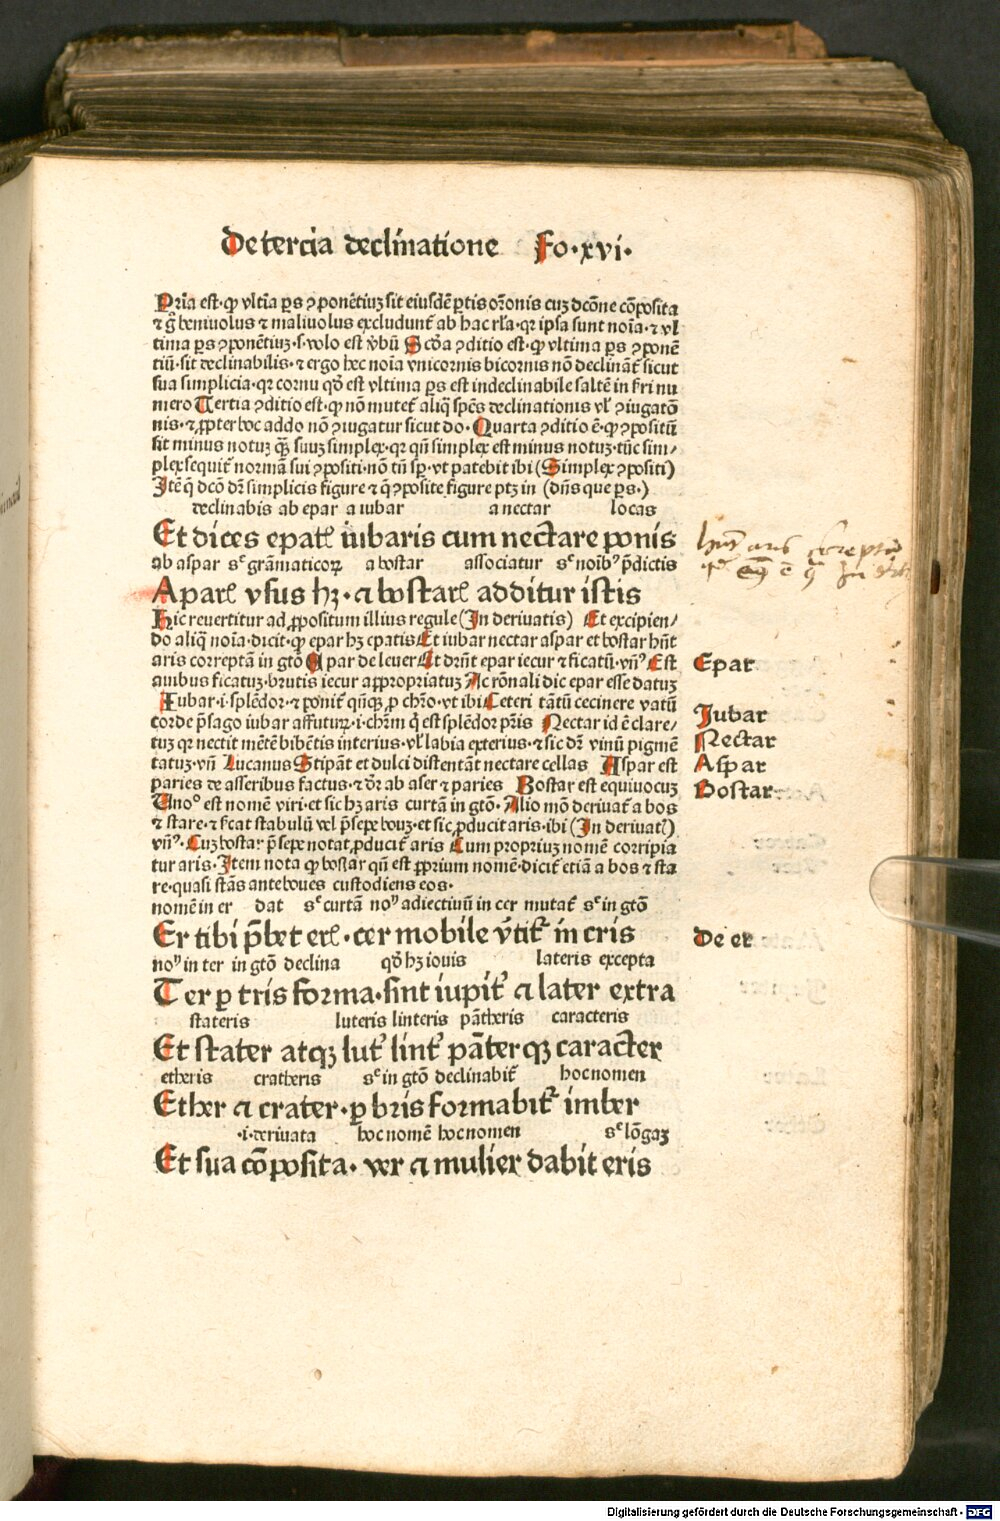 De tercia declinatione Fo·xvi·
Pria est·ꝙ vltia ps ꝯponētiuꝫ sit eiusdē ptis orōnis cuꝫ dcōne cōposita
⁊ g̊ beniuolus ⁊ maliuolus excludunt̄ ab hac rl̄a·qꝛ ipsa sunt noīa·⁊ vl
tima ps ꝯponētiuꝫ·s·volo est v̄bū Scd̄a ꝯditio est·ꝙ vltima ps ꝯponē
tiū·sit declinabilis·⁊ ergo hec noīa vnicornis bicornis nō declināt̄ sicut
sua simplicia·qꝛ cornu qd̓ est vltima ps est indeclinabile saltē in sri nu
mero Tertia ꝯditio est·ꝙ nō mutet̄ aliq̄ spēs declinationis vl̓ ꝯiugatō
nis·⁊ ꝓpter hoc addo nō ꝯiugatur sicut do·Quarta ꝯditio ē·ꝙ ꝯpositū
sit minus notuꝫ qꝫ̄ suuꝫ simplex·qꝛ qn̄ simplex est minus notuꝫ·tūc sim⸗
plex sequit̄ normā sui ꝯpositi·nō tn̄ sp·vt patebit ibi (Simplex ꝯpositi)
Itē q̄ dcō dr̄ simplicis figure ⁊ q̄ ꝯposite figure ptꝫ in (dn̄s que ps·)
declinabis ab epar a iubar a nectar locas
Et dices epatꝭ iubaris cum nectare ponis
ab aspar sᵉ grāmaticoꝝ a bostar associatur sᵉ noībꝰ p̄dictis
A parꝭ vsus hꝫ·⁊ a bostarꝭ additur istis
Hic reuertitur ad ꝓpositum illius regule (In deriuatis) Et excipien⸗
do aliq̄ noīa·dicit·ꝙ epar hꝫ epatis Et iubar nectar aspar et bostar hn̄t
aris correptā in gtō Apar de leuer Et drn̄t epar iecur ⁊ ficatū·vn̄ꝰ Est
auibus ficatuꝫ·brutis iecur appropriatuꝫ Ac rōnali dic epar esse datuꝫ
Iubar·i·splēdor·⁊ ponit̄ qn̄qꝫ ꝓ chrō·vt ibi Ceteri tātū cecinere vatū
corde p̄sago iubar affuturꝝ·i·chrm̄ q̓ est splēdor pr̄is Nectar id ē clare⸗
tuꝫ qꝛ nectit mētē bibētis interius·vl̓ labia exterius·⁊ sic dr̄ vinū pigmē
tatuꝫ·vn̄ Lucanus Stipāt et dulci distentāt nectare cellas Aspar est
paries de asseribus factus·⁊ dr̄ ab aser ⁊ paries Bostar est equiuocuꝫ
Vnoᵒ est nomē viri·et sic hꝫ aris curtā in gtō·Alio mō deriuat̄ a bos
⁊ stare·⁊ ſcat stabulū vel p̄sepe bouꝫ·et sic ꝓducit aris·ibi (In deriuatꝭ)
vn̄ꝰ·Cuꝫ bostar p̄sepe notat ꝓducit̄ aris Cum propriuꝫ nomē corripia
tur aris·Item nota ꝙ bostar qn̄ est ꝓprium nomē·dicit̄ etiā a bos ⁊ sta
re·quasi stās ante boues custodiens eos·
nomē in er dat sᵉ curtā noꝰ adiectiuū in cer mutat̄ sᵉ in gtō
Er tibi p̄bet erꝭ·cer mobile v̄tit̄ in cris
noꝰ in ter in gtō declina qd̓ hꝫ iouis lateris excepta
Ter per tris forma·sint iupit̄ ⁊ later extra
stateris luteris linteris pātheris caracteris
Et stater atqꝫ lut̄ lint̄ pāter qꝫ caracter
etheris crateris sᵉ in gtō declinabit̄ hoc nomen
Ether ⁊ crater·per bris formabit̄ imber
·i·deriuata hoc nomē hoc nomen sᵉ lōgaꝫ
Et sua cōposita·ver ⁊ mulier dabit eris
Epar
Iubar
Nectar
Aspar
Bostar
De er
Digitalisierung gefördert durch die Deutsche Forschungsgemeinschaft - DFG